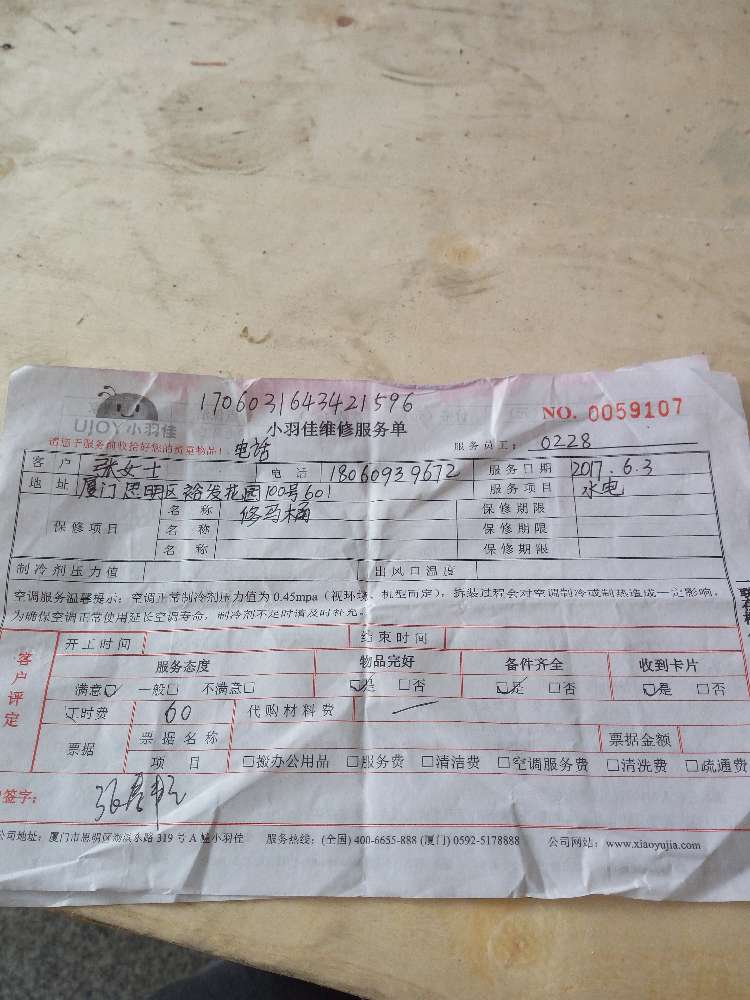 1706031643421596
UJOY小羽佳
小羽佳维修服务单
NO. 0059107
请您于服务前收拾好您的贵重物品！
电话
服务员工： 0228
客户 张女士 电话 18060939672 服务日期 2017.6.3
地址 厦门思明区裕发花园100号601 服务项目 水电
保修项目 名称 修马桶 保修期限
名称 保修期限
名称 保修期限
制冷剂压力值 出风口温度
空调服务温馨提示：空调正常制冷剂压力值为 0.45mpa（视环境、机型而定），拆装过程会对空调制冷或制热造成一定影响，
为确保空调正常使用延长空调寿命，制冷剂不足时请及时补充。
开工时间 结束时间
客户评定
服务态度 物品完好 备件齐全 收到卡片
满意☑ 一般☐ 不满意☐ ☑是 ☐否 ☑是 ☐否 ☑是 ☐否
工时费 60 代购材料费 —
票据 票据名称 票据金额
项目 ☐搬办公用品 ☐服务费 ☐清洁费 ☐空调服务费 ☐清洗费 ☐疏通费
签字：
公司地址：厦门市思明区湖滨东路 319 号 A 幢小羽佳 服务热线：(全国) 400-6655-888 (厦门) 0592-5178888 公司网站：www.xiaoyujia.com